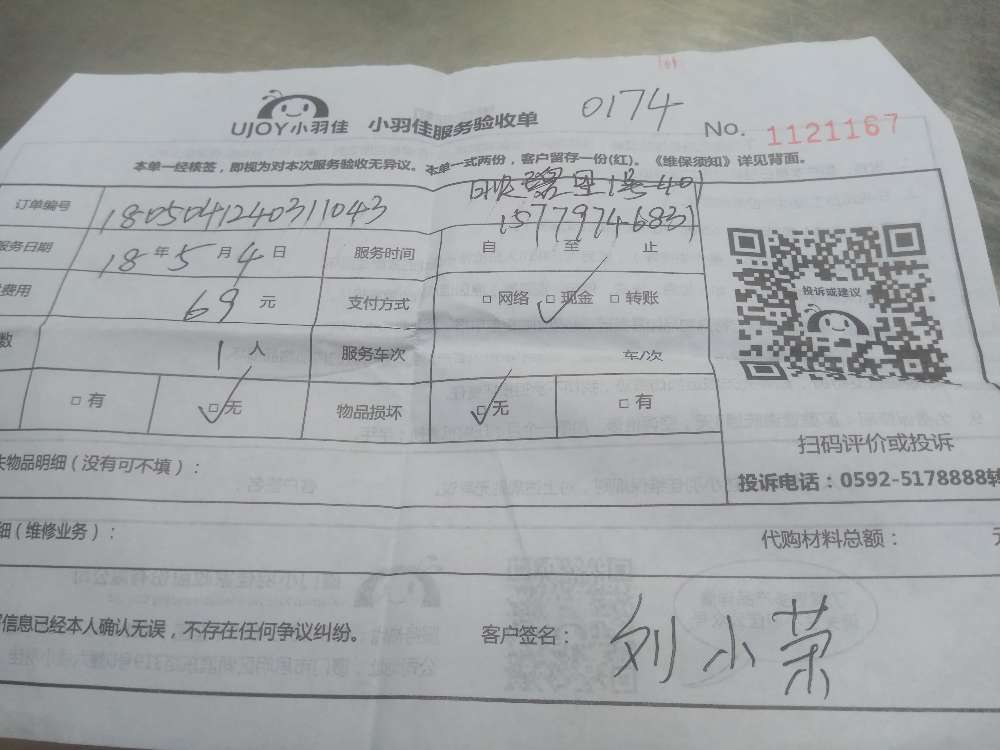 UJOY小羽佳 小羽佳服务验收单 0174 No. 1121167
本单一经核签，即视为对本次服务验收无异议。本单一式两份，客户留存一份(红)。《维保须知》详见背面。
订单编号 1805041240311043
15779746837
服务日期 18 年 5 月 4 日 服务时间 自 至 止
费用 69 元 支付方式 □ 网络 □ 现金 □ 转账
数 1 人 服务车次 车/次
□ 有 □ 无 物品损坏 □ 无 □ 有
投诉或建议
扫码评价或投诉
物品明细（没有可不填）：
投诉电话：0592-5178888转
细（维修业务）： 代购材料总额： 元
信息已经本人确认无误，不存在任何争议纠纷。 客户签名： 刘小荣